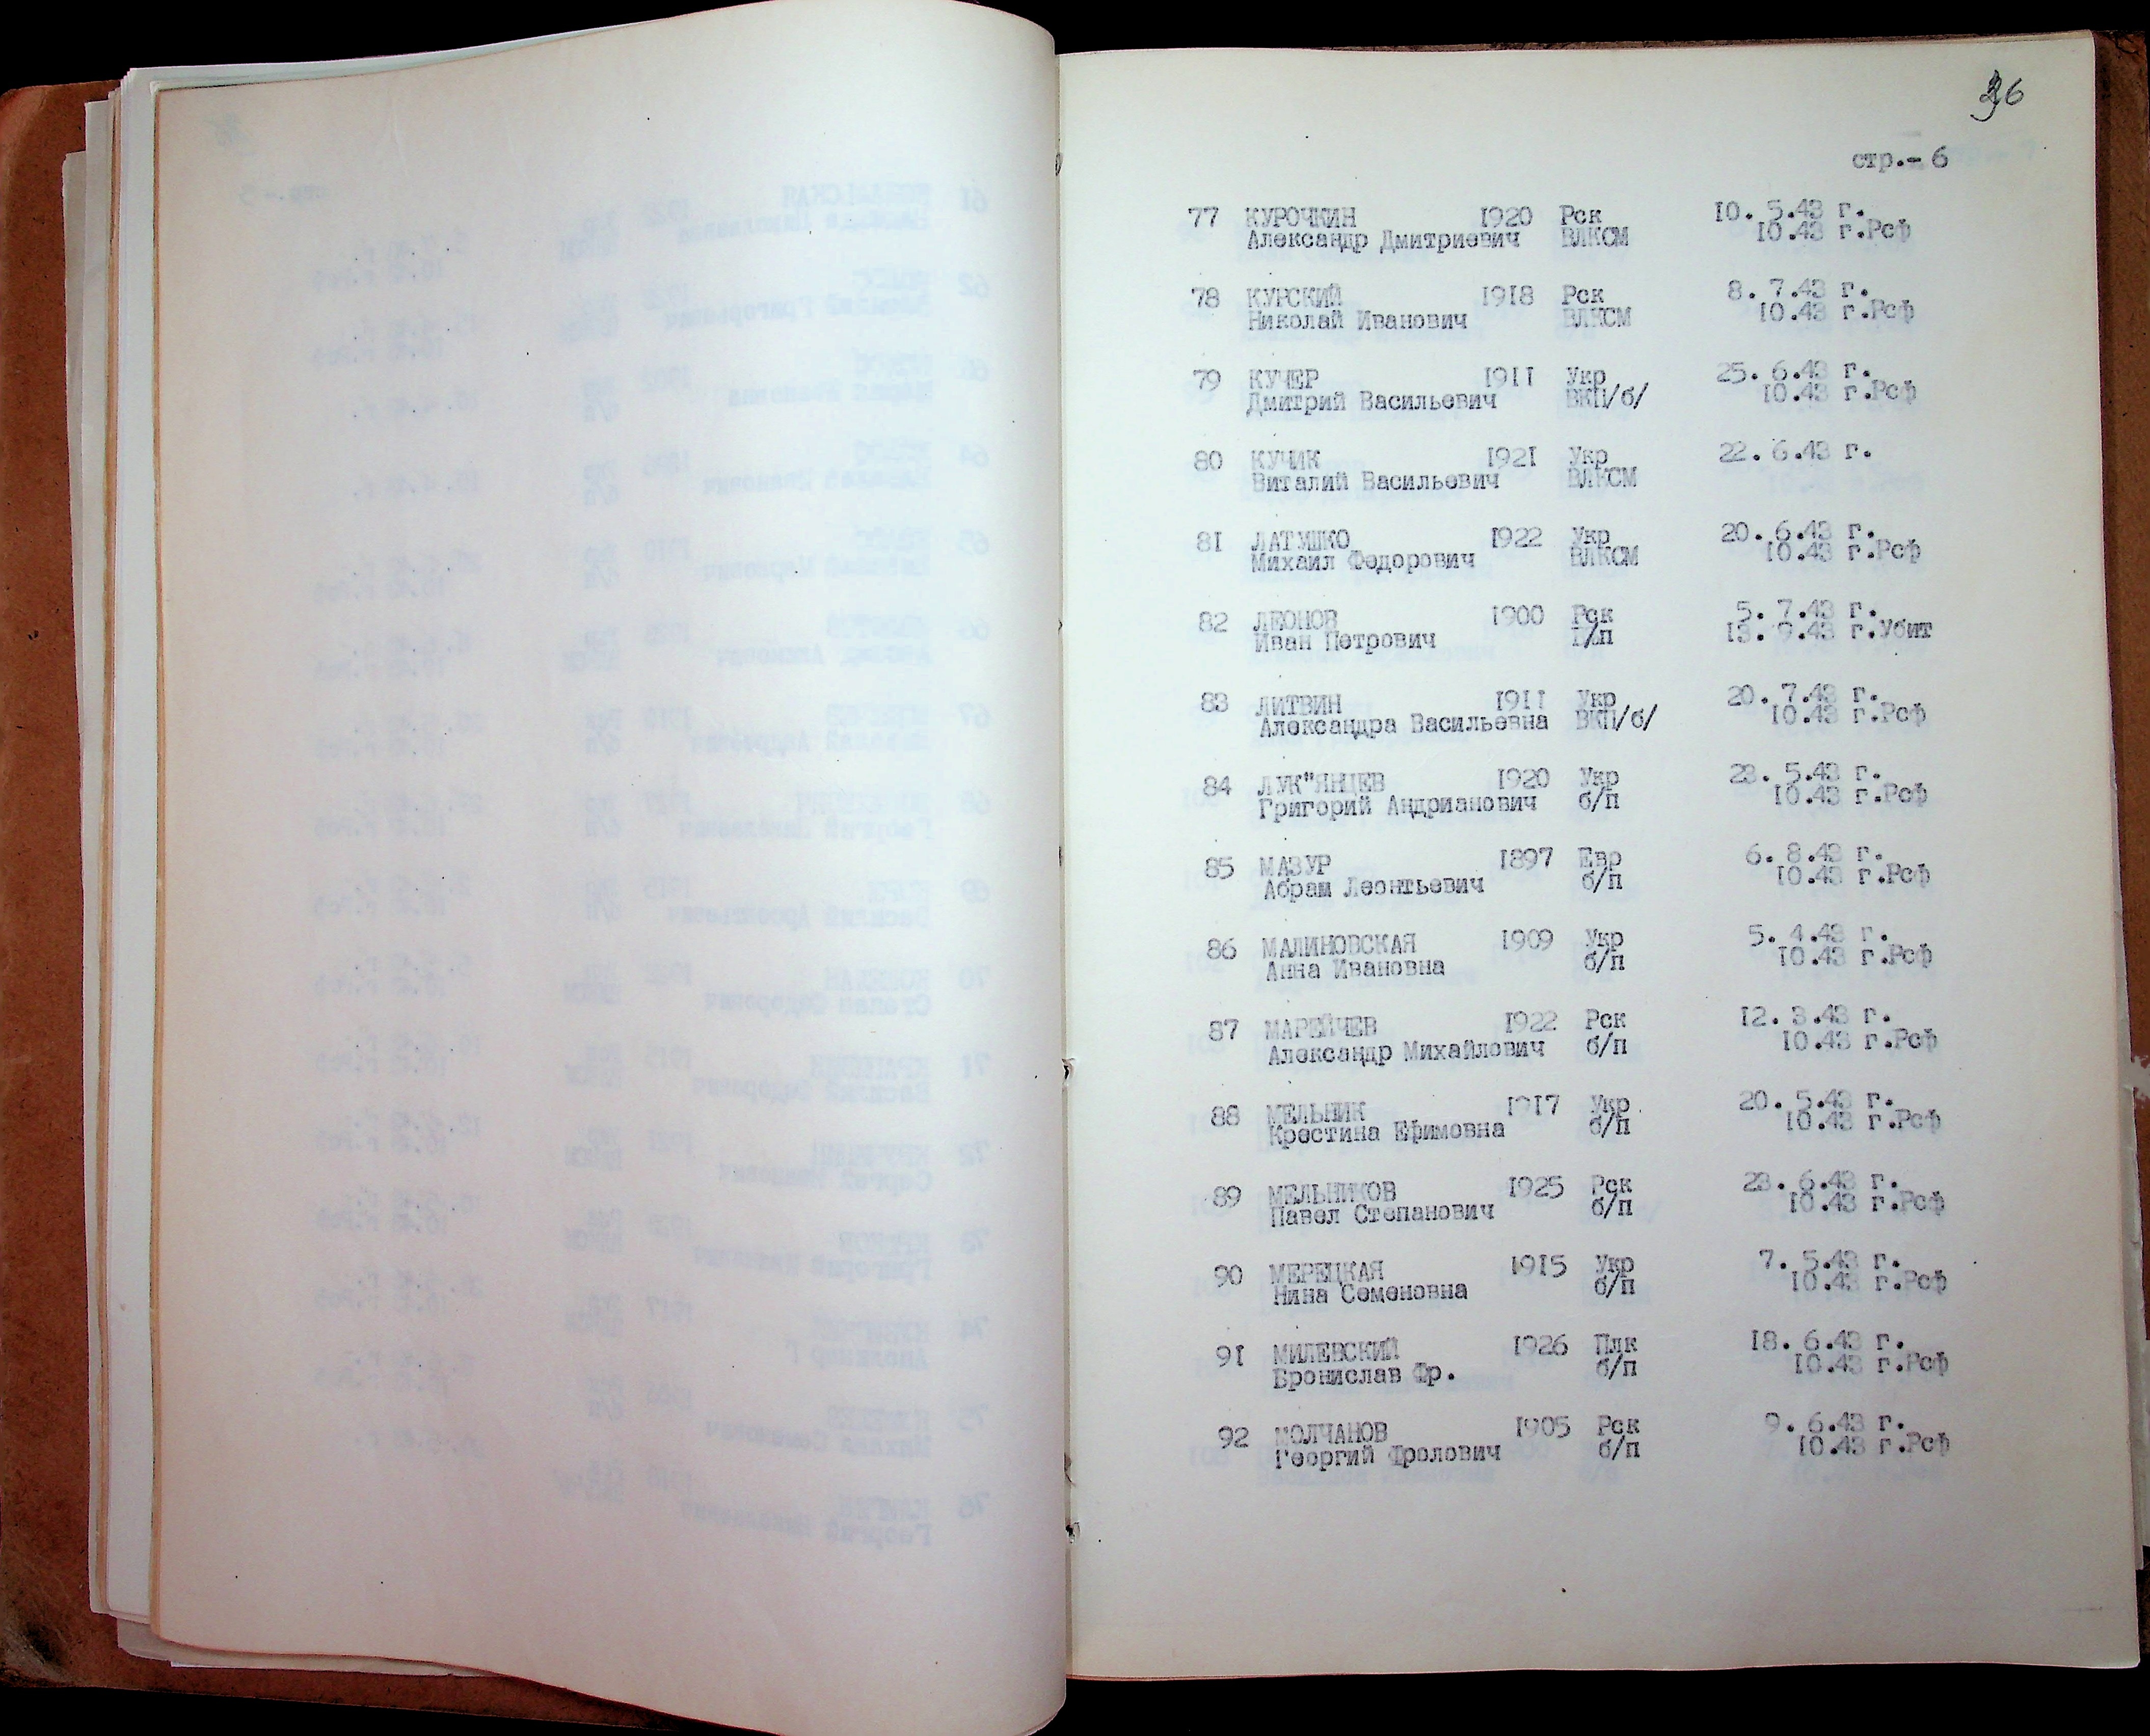 36
стр.- 6
77 КУРОЧКИН 1920 Рск 10. 5.43 г.
Александр Дмитриевич ВЛКСМ 10.43 г.Рсф
78 КУРСКИЙ 1918 Рск 8. 7.43 г.
Николай Иванович ВЛКСМ 10.43 г.Рсф
79 КУЧЕР 1911 Укр 25. 6.43 г.
Дмитрий Васильевич ВКП/б/ 10.43 г.Рсф
80 КУЧИК 1921 Укр 22. 6.43 г.
Виталий Васильевич ВЛКСМ
81 ЛАТУШКО 1922 Укр 20. 6.43 г.
Михаил Федорович ВЛКСМ 10.43 г.Рсф
82 ЛЕОНОВ 1900 Рск 5. 7.43 г.
Иван Петрович 9.43 г.Убит
83 ЛИТВИН 1911 Укр 20. 7.43 г.
Александра Васильевна ВКП/б/ 10.43 г.Рсф
84 ЛУК"ЯНЦЕВ 1920 Укр 5.43 г.
Григорий Андрианович б/п 10.43 г.Рсф
85 МАЗУР 1897 Евр 6. 8.43 г.
Абрам Леонтьевич б/п 10.43 г.Рсф
86 МАЛИНОВСКАЯ 1909 Укр 5. 4.43 г.
Анна Ивановна б/п 10.43 г.Рсф
87 МАРЕЙЧЕВ 1922 Рск 12. 3.43 г.
Александр Михайлович б/п 10.43 г.Рсф
88 МЕЛЬНИК 1917 Укр 20. 5.43 г.
Крестина Ефимовна б/п 10.43 г.Рсф
89 МЕЛЬНИКОВ 1925 Рск 6.43 г.
Павел Степанович б/п 10.43 г.Рсф
90 МЕРЕЦКАЯ 1915 Укр 7. 5.43 г.
Нина Семеновна б/п 10.43 г.Рсф
91 МИЛЕВСКИЙ 1926 Плк 18. 6.43 г.
Бронислав Фр. б/п 10.43 г.Рсф
92 МОЛЧАНОВ 1905 Рск 9. 6.43 г.
Георгий Фролович б/п 10.43 г.Рсф